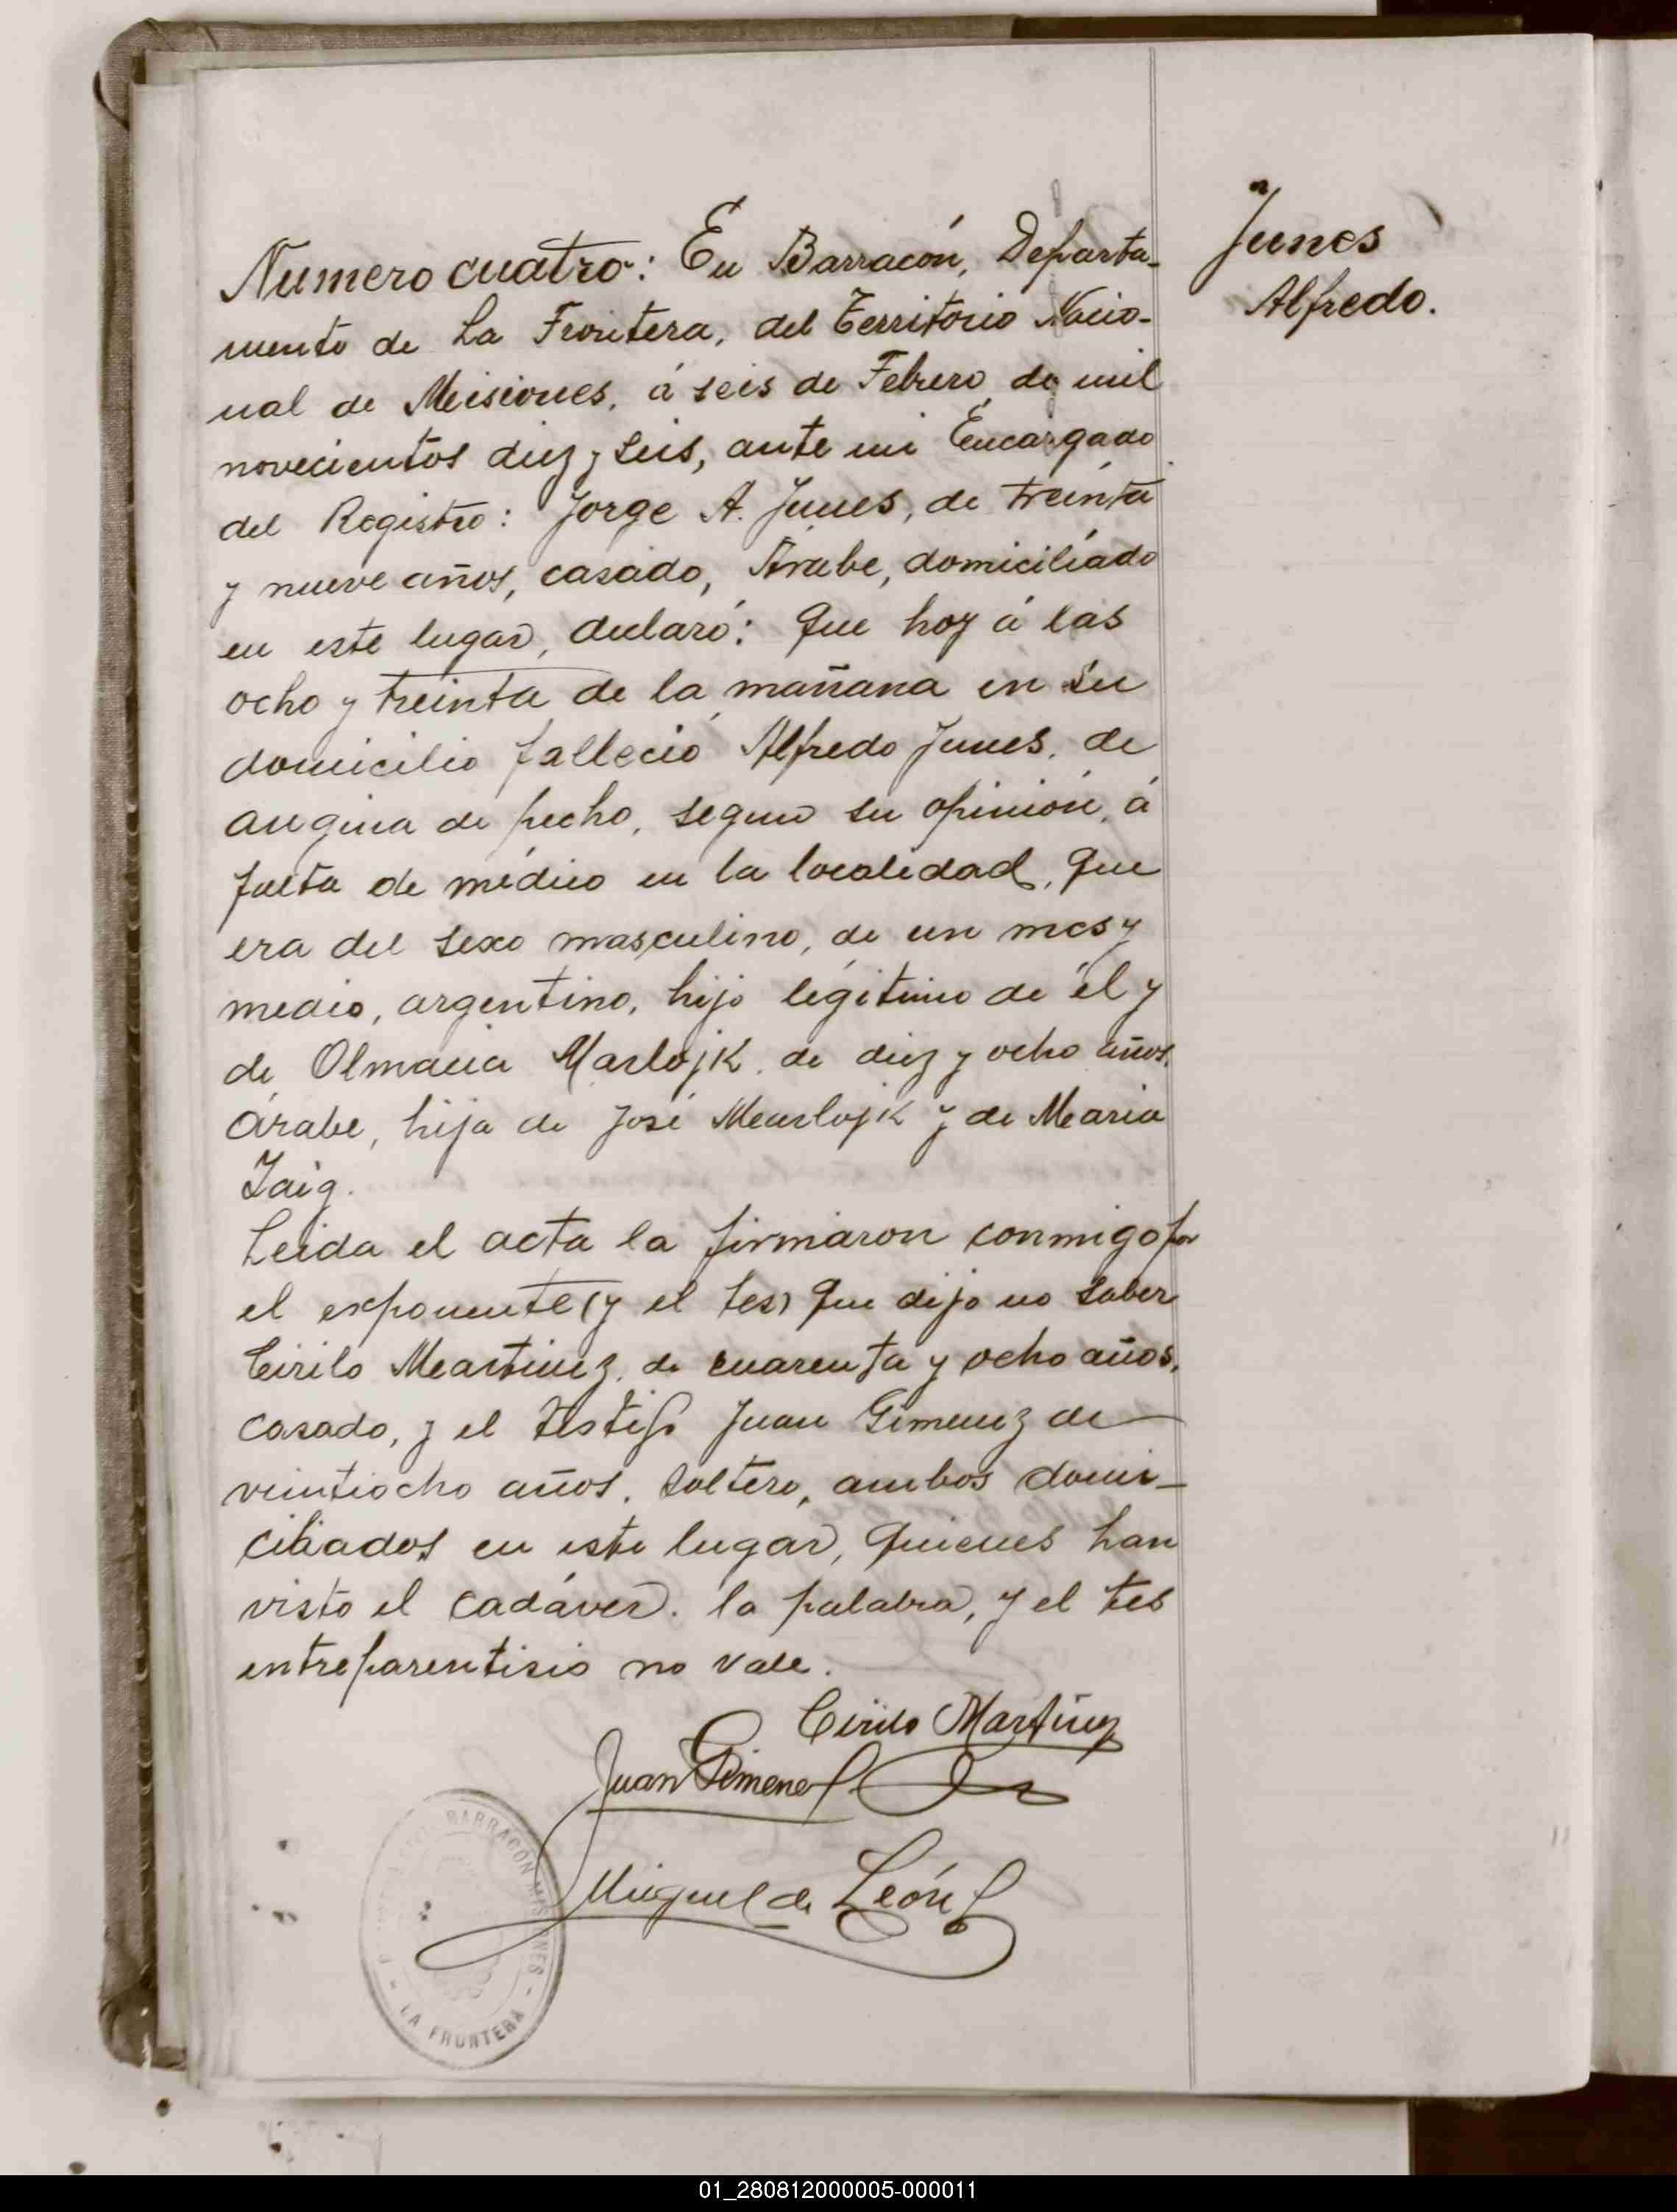 Junes
Alfredo.
Numero cuatro: En Barracón, Departa-
mento de La Frontera, del Territorio Nacio-
nal de Misiones, á seis de Febrero de mil
novecientos diez y seis, ante mi Encargado
del Registro: Jorge A. Junes, de treinta
y nueve años, casado, Árabe, domiciliado
en este lugar, declaró: Que hoy á las
ocho y treinta de la mañana en su
domicilio falleció Alfredo Junes, de
angina de pecho, segun su opinión, á
falta de médico en la localidad, que
era del sexo masculino, de un mes y
medio, argentino, hijo légitimo de él y
de Olmacia Marlojk, de diez y ocho años,
Árabe, hija de José Marlojk y de Maria
Zaig.
Leida el acta la firmaron conmigo por
el exponente (y el tes) que dijo no saber
Cirilo Martinez, de cuarenta y ocho años,
casado, y el testigo Juan Gimenez de
veintiocho años, soltero, ambos domi-
ciliados en este lugar, quienes han
visto el cadáver. la palabra, y el tes
entreparentisis no vale.
Cirilo Martinez
Juan Gimenez
Miguel de León
BARRACÓN MISIONES
LA FRONTERA
01_280812000005-000011